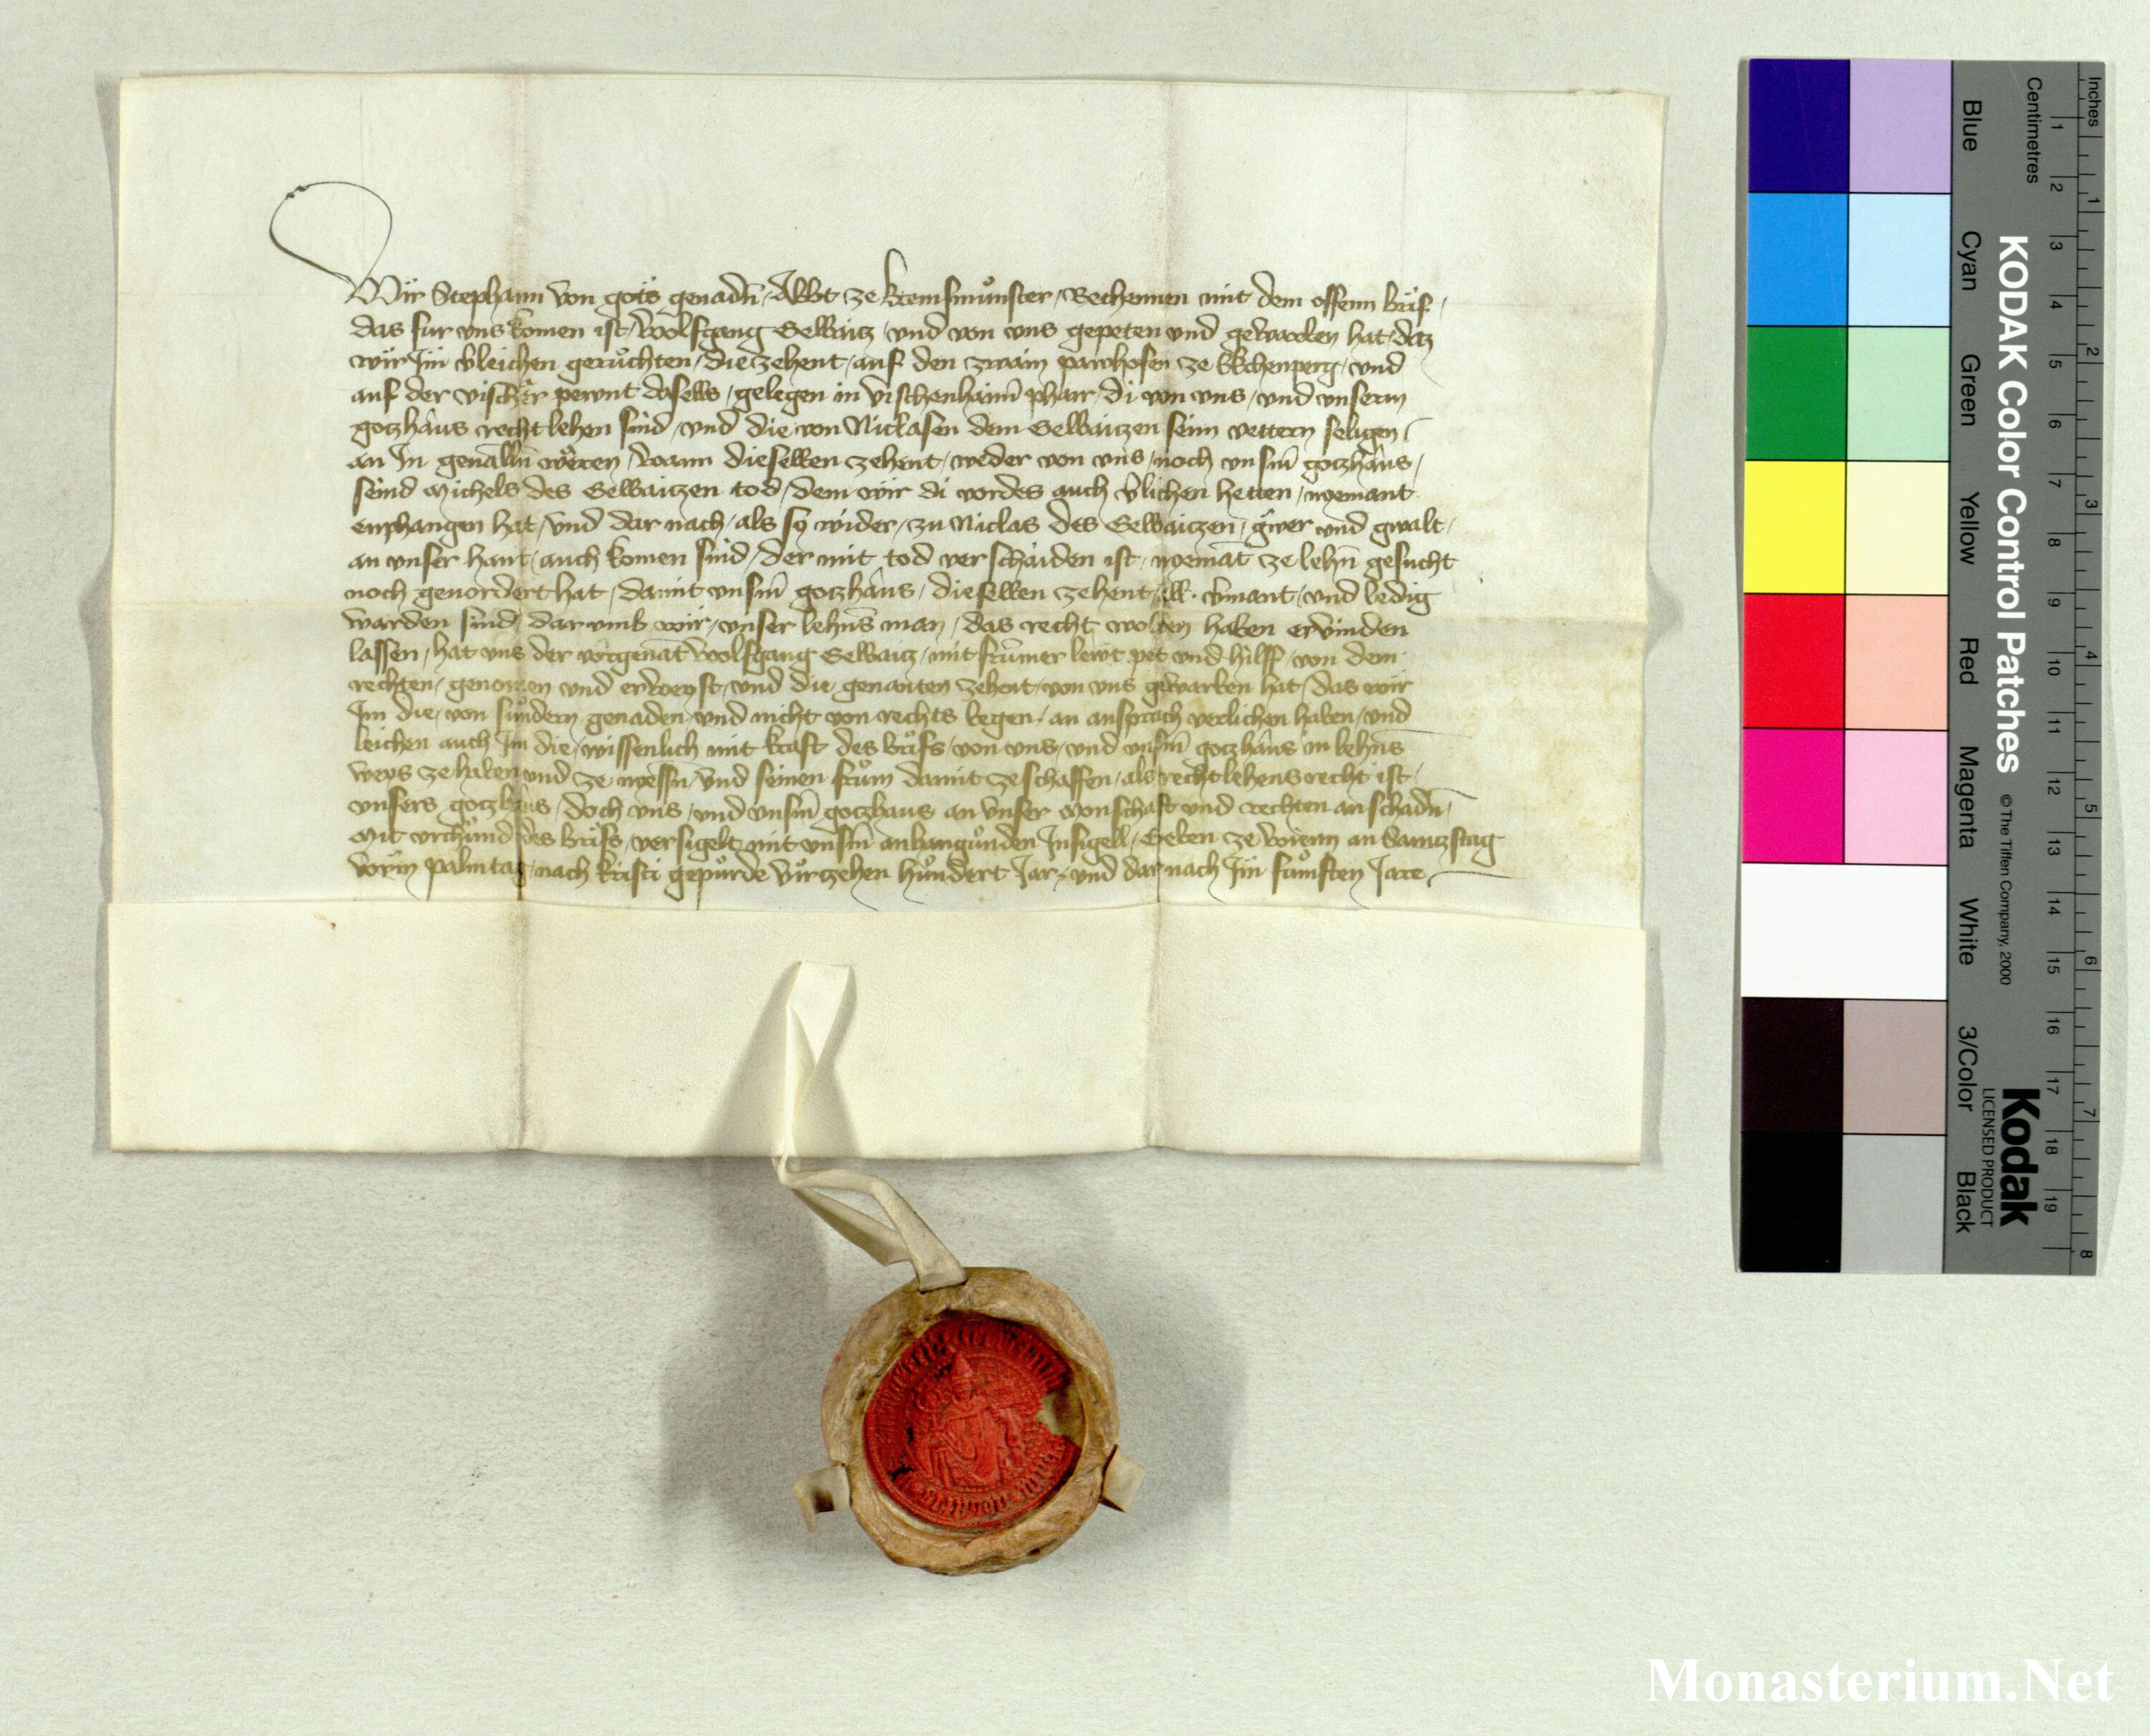 Wir Stephann von gots genadn Abbt ze kremsmůnster Bechennen mit dem offenn brif
das fur vns komen ist Wolfgang Gelbaicz vnd von vns gepeten und geworben hat daz
wir Im verleichen gerůchten die zehent auf den zwain pawhofen ze vnd
auf der vischer pewnt daselbs gelegen in vischenhaim pharr di von vns vnd vnserm
goczhaus recht lehen sind vnd die von Niclasen dem Gelbaiczen seim vettern seligen
an In geuallen wëren wann dieselben zehent weder von vns noch vnsm̄ goczhaus
seind Michels des Gelbaiczen tod dem wir di vordes auch v̄lichen hetten nyemant
emphangen hat vnd dar nach als sy wider zu Niclas des Gelbaiczen gwer und gwalt
an vnser hant auch komen sind der mit tod verschaiden ist nyemāt ze lehn̄ gesucht
noch geuordert hat damit vnsm̄ goczhaus dieselben zehent vnd ledig
warden sind darumb wir vnser lehns man das recht wolten haben ervinden
lassen hat vns der vorgenāt Wolfgang Gelbaicz mit frůmer lewt pet vnd hilff von dem
rechten genomen vnd vnd die genanten zehent von vns geworben hat das wir
Im die von sundern genaden vnd nicht von rechts wegen an ansprach verlichen haben vnd
leichen auch Im die wissenlich mit kraft des brifs von vns vnd vnsm̄ goczhaus in lehns
weys ze haben vnd ze nyessn vnd seinen frům damit ze schaffen als recht lehens recht ist
vnsers goczhaus doch vns vnd vnsm̄ goczhaus an vnser Monschaft vnd rechten an schadn̄
Mit vrchůnd des brifs versigelt mit vnsm̄ anhangůnden Insigell Geben ze Wienn an Samcztag
vorm palmtag nach kristi gepůrde virczehen hůndert Jar vnd dar nach Im fůmften Jare
Blue
Cyan
Green
Yellow
Red
Magenta
White
3/Color
Black
KODAK Color Control Patches © The Tiffen Company, 2000
Kodak
LICENSED PRODUCT
Centimetres
1 2 3 4 5 6 7 8 9 10 11 12 13 14 15 16 17 18 19
Inches
1 2 3 4 5 6 7 8
Monasterium.Net